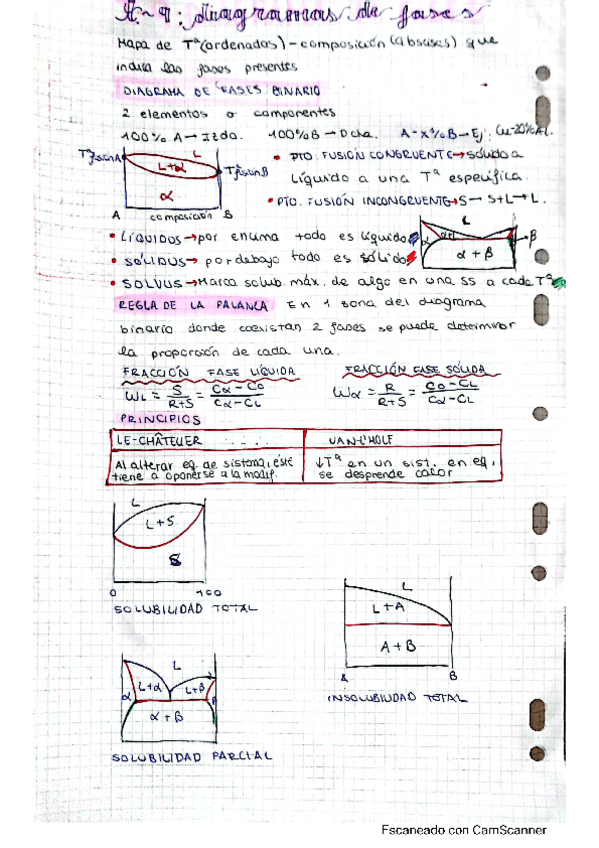 T-9: diagramas de fases
Mapa de Tª (ordenadas) - composición (abscisas) que
indica las fases presentes
DIAGRAMA DE FASES BINARIO
2 elementos o componentes
100% A → Izda. 100% B → Dcha. A-x%B → Ej. Cu-20%Al.
Tªfusión A
L
L+α
Tªfusión B
α
A composición B
• PTO. FUSIÓN CONGRUENTE → sólido a
líquido a una Tª específica.
• PTO. FUSIÓN INCONGRUENTE → S → S+L → L.
• LÍQUIDUS → por encima todo es líquido
• SÓLIDUS → por debajo todo es sólido
L
α
β
α + β
• SOLVUS → Marca solub. máx. de algo en una SS a cada Tª
REGLA DE LA PALANCA En 1 zona del diagrama
binario donde coexistan 2 fases se puede determinar
la proporción de cada una.
FRACCIÓN FASE LÍQUIDA FRACCIÓN FASE SÓLIDA
WL = S/R+S = Cα-C0/Cα-CL Wα = R/R+S = C0-CL/Cα-CL
PRINCIPIOS
LE-CHÂTELIER VAN'T HOFF
Al alterar eq. de sistema, éste
tiene a oponerse a la modif.
↓Tª en un sist. en eq.
se desprende calor
L
L+S
S
0 100
SOLUBILIDAD TOTAL
L
L+A
A+B
A B
INSOLUBILIDAD TOTAL
L
L+α L+β
α β
α+β
SOLUBILIDAD PARCIAL
Escaneado con CamScanner